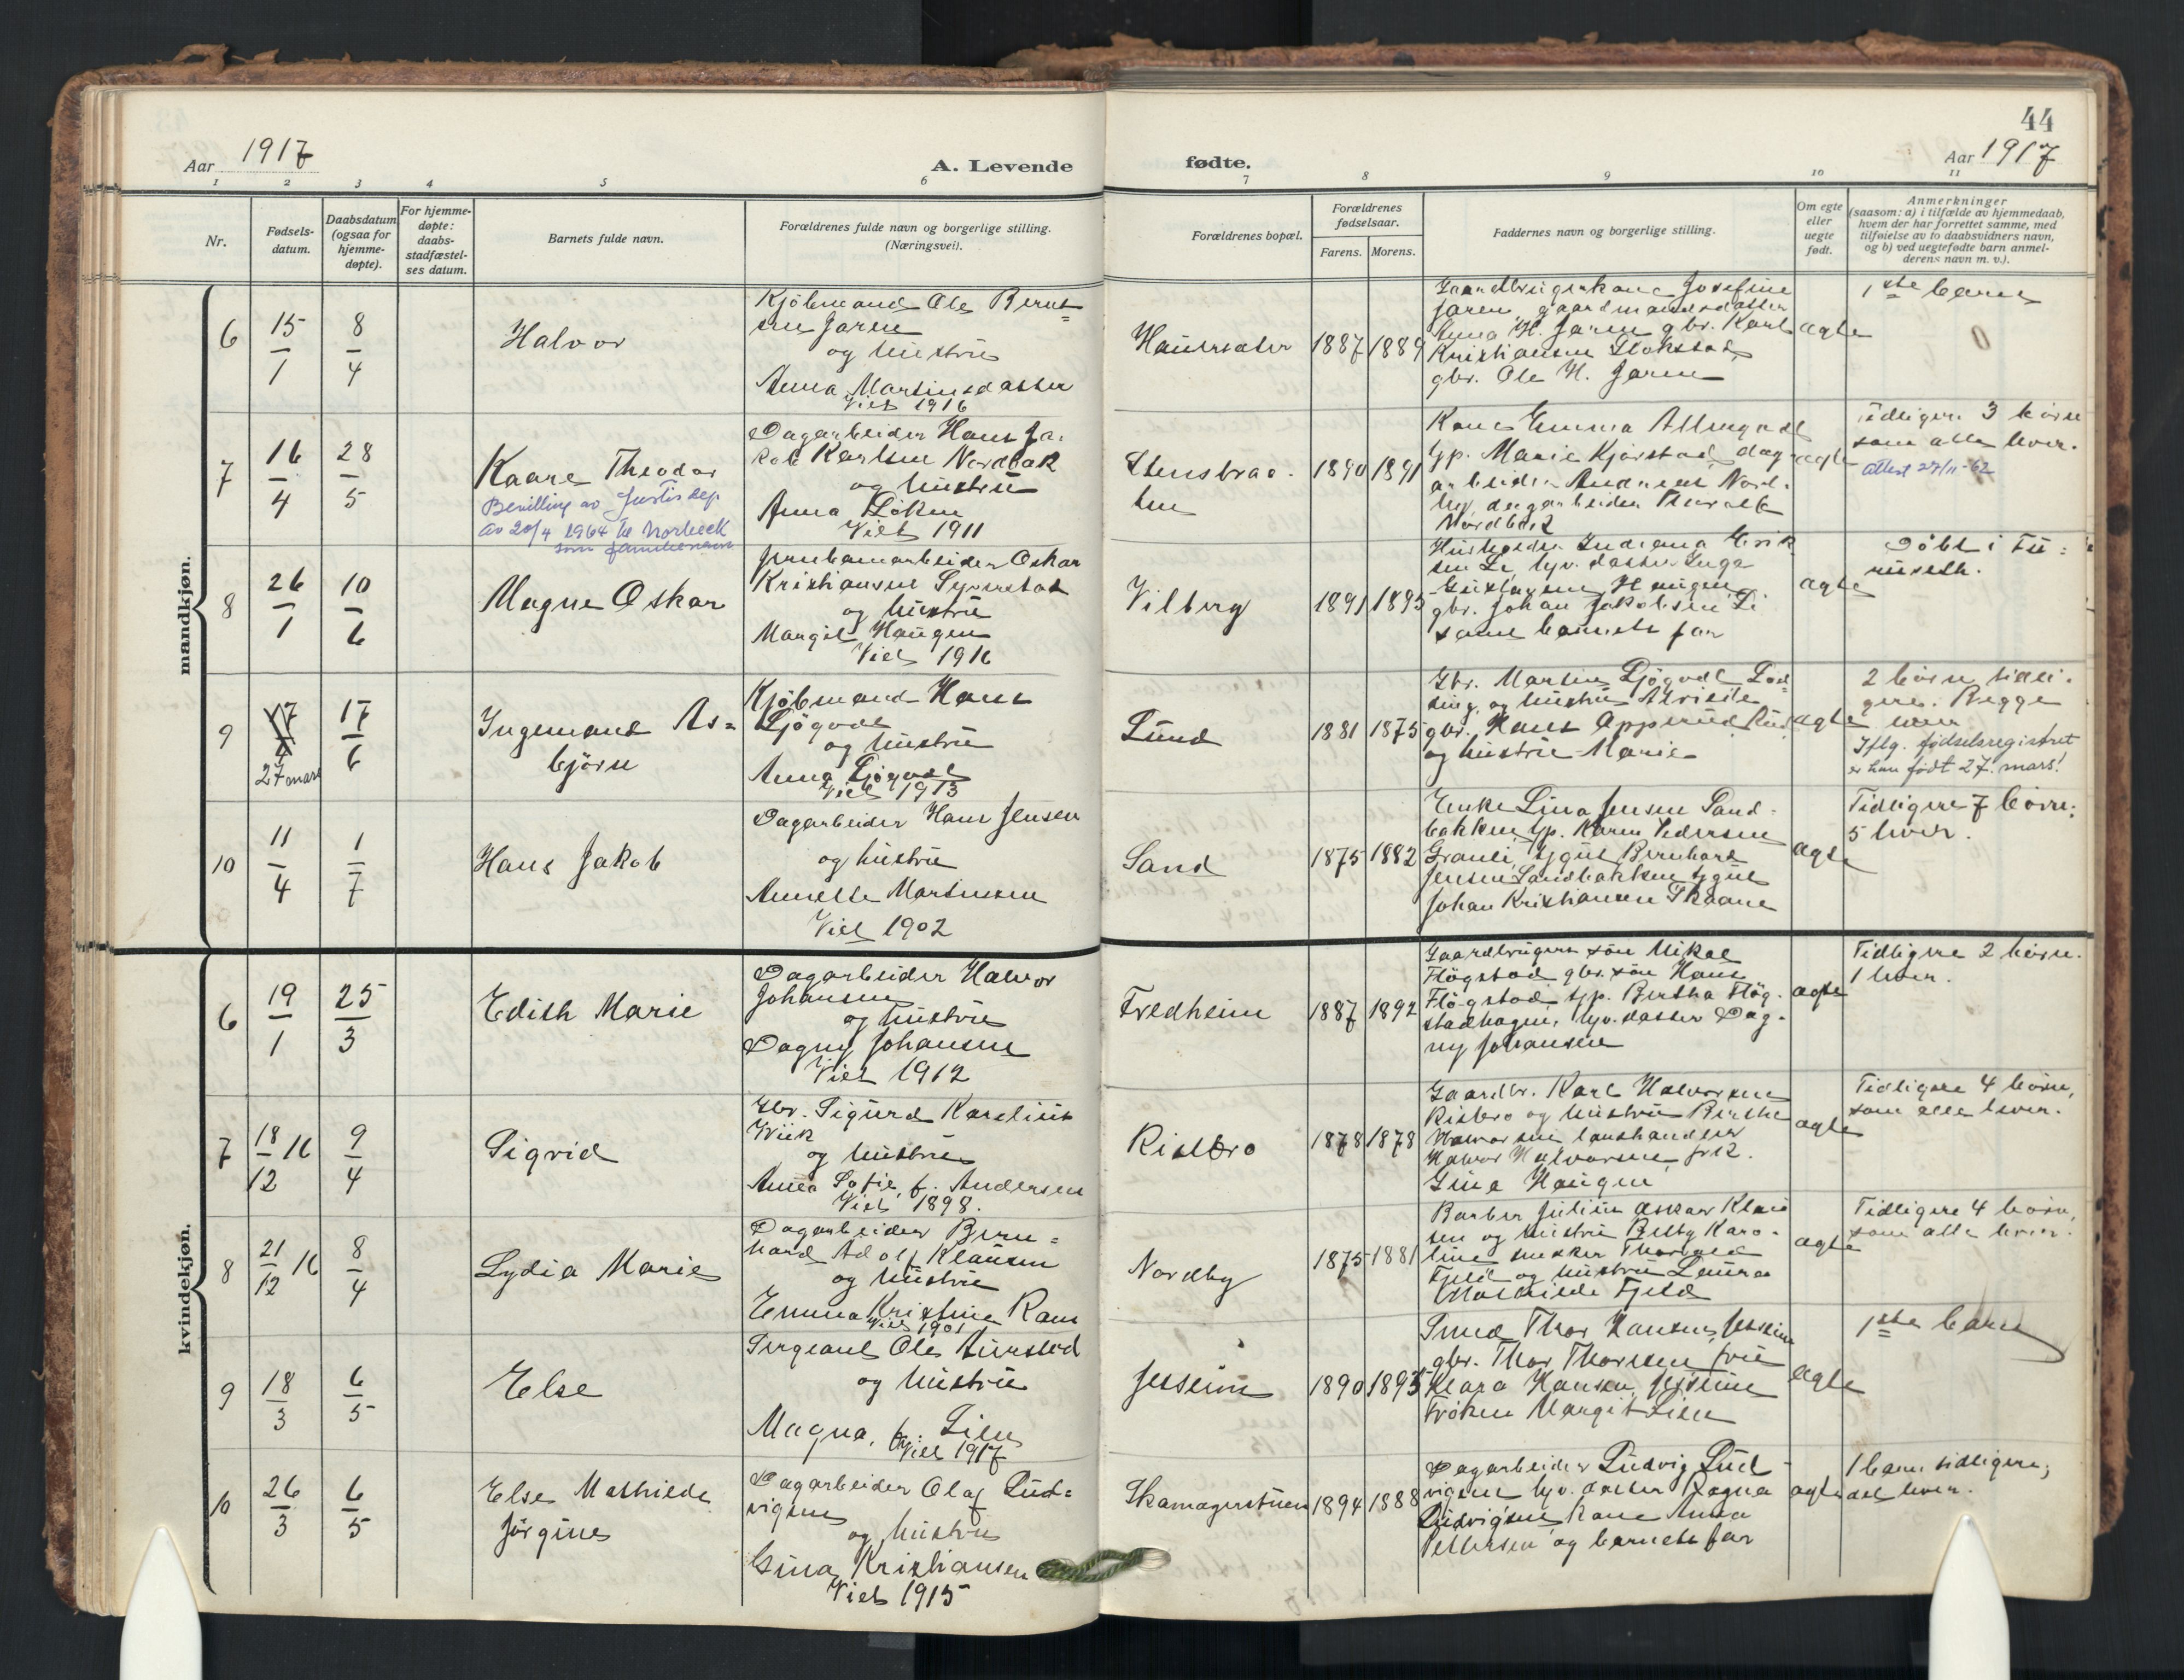 44
Aar 1917
A. Levende
fødte.
Aar 1917
1 2 3 4 5 6 7 8 9 10 11
Nr.
Fødsels-
datum.
Daabsdatum
(ogsaa for
hjemme-
døpte).
For hjemme-
døpte:
daabs-
stadfæstel-
ses datum.
Barnets fulde navn.
Forældrenes fulde navn og borgerlige stilling.
(Næringsvei).
Forældrenes bopæl.
Forældrenes
fødselsaar.
Farens. Morens.
Faddernes navn og borgerlige stilling.
Om egte
eller
uegte
født.
Anmerkninger
(saasom: a) i tilfælde av hjemmedaab,
hvem der har forrettet samme, med
tilføielse av to daabsvidners navn,
og b) ved uegtefødte barn anmel-
derens navn m. v.).
mandkjøn.
6
15/1
8/4
Halvor
Kjöbmand Ole Bernt=
sen Jaren
og hustru
Anna Martinsdatter
Viet 1916
1887 1889
Gaardbrugerkone Josefine
Jaren, gaardmandsdatter
Anna H. Jaren gbr. Karl
Kristiansen
gbr. Ole H. Jaren
ægte
1ste barn
7
16/4
28/5
Kaare Theodor
Bevilling av Justisdep.
av 20/4 1964 til Norbeck
som familienavn
Dagarbeider Hans Ja-
kob Karlsen Nordbak
og hustru
Anna Löken
Viet 1911
Stensbraa-
ten
1890 1891
Kone Emma
gp. Marie Kjörstad, dag-
arbeider Andreas Nord-
by, dagarbeider
Nordbak
ægte
Tidligere 3 börn
som alle lever.
Attest 27/11-62
8
26/1
10/6
Magne Oskar
Jernbanearbeider Oskar
Kristiansen
og hustru
Margit Haugen
Viet 1916
Vilberg
1891 1895
Erik
sen Li, datter Inga
Gustavsen Haugen
gbr. Johan Jakobsen Li
samt barnets far
ægte
Döbt i Fu=
ruseth.
9
27 mars
17/6
Ingemand As=
björn
Kjöbmand Hans
Ljögodt
og hustru
Anna Ljögodt
Viet 1913
Lund
1881 1875
Gbr. Martin Ljögodt
og hustru
gbr. Hans Opperud
og hustru Marie
ægte
2 börn tidli-
gere. Begge
lever
Iflg. fødselsregistret
er han født 27. mars!
10
11/4
1/7
Hans Jakob
Dagarbeider Hans Jensen
og hustru
Annette Martinsen
Viet 1902
Sand
1875 1882
Enke Lina Jensen Sand-
bakken, gp. Karen Pedersen
Granli, Bernhard
Jensen Sandbakken
Johan Kristiansen Skaane
ægte
Tidligere 7 börn.
5 lever.
kvindekjøn.
6
19/1
25/3
Edith Marie
Dagarbeider Halvor
Johansen
og hustru
Dagny Johansen
Viet 1912
Fredheim
1887 1892
Gaardbrugers sön Mikal
Flögstad gbr. sön Hans
Flögstad, gp. Bertha Flög-
stadhagen, datter Dag-
ny Johansen
ægte
Tidligere 2 börn.
1 lever.
7
18/12 16
9/4
Sigrid
Gbr. Sigurd Karelius
Wiik
og hustru
Anna Sofie, f. Andersen
Viet 1898.
Risebro
1878 1878
Gaardbr. Karl Halvorsen
Risbro og hustru Berthe
Halvorsen landhandler
Halvor Halvorsen, frk.
Gina Haugen
ægte
Tidligere 4 börn,
som alle lever.
8
21/12 16
8/4
Lydia Marie
Dagarbeider Bern=
hard Adolf Klausen
og hustru
Emma Kristine Ram
Viet 1901
Nordby
1875 1881
Barber Julius Oskar Klau
sen og hustru Betsy Karo-
line snekker Thorvald
Fjeld og hustru Laura
Mathilde Fjeld
ægte
Tidligere 4 börn,
som alle lever.
9
18/3
6/5
Else
Sergeant Ole Aurstad
og hustru
Magna, f. Lien
Viet 1917
Jessheim
1890 1895
Smed Thor Hansen, Jessheim
gbr. Thor Thoresen, frue
Klara Hansen, Jessheim
Fröken Margit Lien
ægte
1ste barn
10
26/3
6/5
Else Mathilde
Jörgine
Dagarbeider Olaf Lud=
vigsen
og hustru
Gina Kristiansen
Viet 1915
Skamagerstuen
1894 1888
Dagarbeider Ludvig Lud-
vigsen, datter Ragna
Ludvigsen, kone Anna
Pettersen og barnets far
ægte
1 barn tidligere,
det lever.